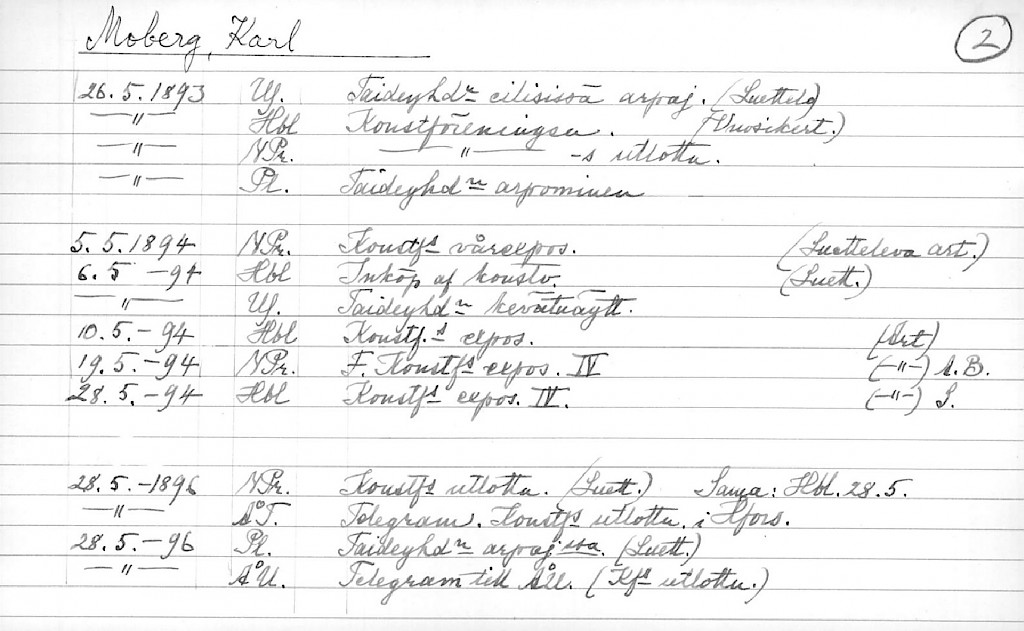 Moberg, Karl
2
26.5.1893 Uf. Taideyhdn eilisissä arpaj. (Luettelo
—"— Hbl Konstföreningen. (Vuosikert.)
—"— NPr. —"— -s utlottn.
—"— Pl. Taideyhdn arpominen
5.5.1894 NPr. Konstfs vårexpos. (Luetteleva art.)
6.5 -94 Hbl Inköp af konstv. (Luett.)
—"— Uf. Taideyhdn kevätnäytt.
10.5.-94 Hbl Konstf.s expos. (Art)
19.5.-94 NPr. F. Konstfs expos. IV (-"-) A.B.
28.5.-94 Hbl Konstfs expos. IV. (-"-) S.
28.5.-1896 NPr. Konstfs utlottn. (Luett.) Sama: Hbl. 28.5.
—"— ÅT. Telegram. Konstfs utlottn. i Hfors.
28.5.-96 Pl. Taideyhdn arpajssa. (Luett.)
—"— ÅU. Telegram till ÅU. (Kfs utlottn.)